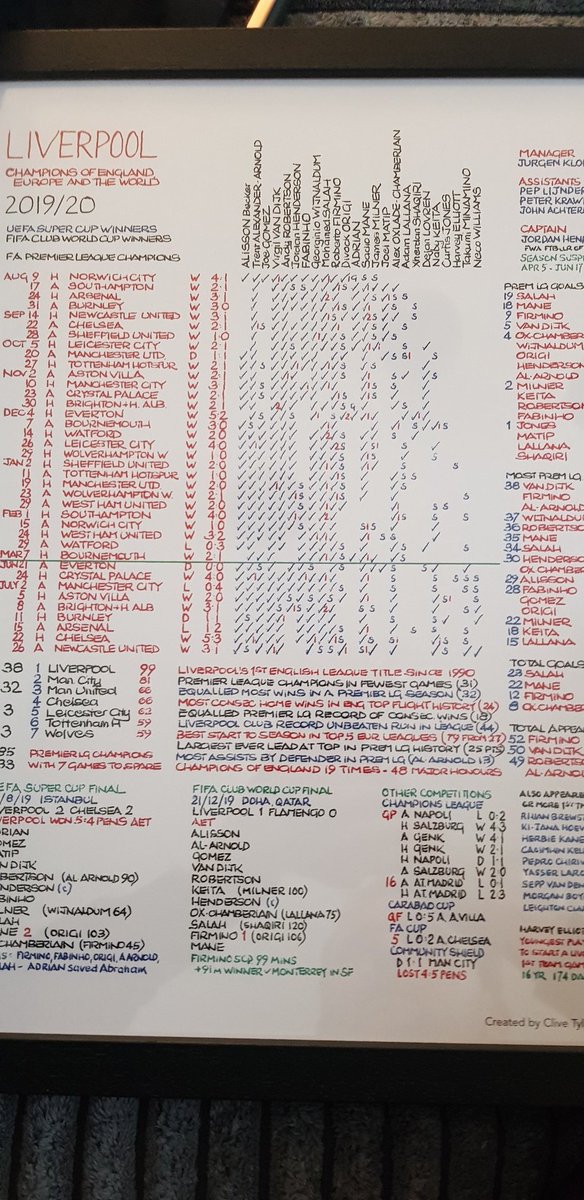 LIVERPOOL
CHAMPIONS OF ENGLAND
EUROPE AND THE WORLD
2019/20
UEFA SUPER CUP WINNERS
FIFA CLUB WORLD CUP WINNERS
FA PREMIER LEAGUE CHAMPIONS
ALISSON Becker
Trent ALEXANDER-ARNOLD
Joe GOMEZ
Virgil VAN DIJK
Andy ROBERTSON
Jordan HENDERSON
FABINHO
Georginio WIJNALDUM
Mohamed SALAH
Roberto FIRMINO
Divock ORIGI
ADRIAN
Sadio MANE
James MILNER
Joel MATIP
Alex OXLADE-CHAMBERLAIN
Adam LALLANA
Xherdan SHAQIRI
Dejan LOVREN
Naby KEITA
Curtis JONES
Harvey ELLIOTT
Takumi MINAMINO
Neco WILLIAMS
AUG 9 H NORWICH CITY W 4·1
17 A SOUTHAMPTON W 2·1
24 H ARSENAL W 3·1
31 A BURNLEY W 3·0
SEP 14 H NEWCASTLE UNITED W 3·1
22 A CHELSEA W 2·1
28 A SHEFFIELD UNITED W 1·0
OCT 5 H LEICESTER CITY W 2·1
20 A MANCHESTER UTD. D 1·1
27 H TOTTENHAM HOTSPUR W 2·1
NOV 2 A ASTON VILLA W 2·1
10 H MANCHESTER CITY W 3·1
23 A CRYSTAL PALACE W 2·1
30 H BRIGHTON+H. ALB W 2·1
DEC 4 H EVERTON W 5·2
7 A BOURNEMOUTH W 3·0
14 H WATFORD W 2·0
26 A LEICESTER CITY W 4·0
29 H WOLVERHAMPTON W. W 1·0
JAN 2 H SHEFFIELD UNITED W 2·0
11 A TOTTENHAM HOTSPUR W 1·0
19 H MANCHESTER UTD W 2·0
23 A WOLVERHAMPTON W. W 2·1
29 A WEST HAM UNITED W 2·0
FEB 1 H SOUTHAMPTON W 4·0
15 A NORWICH CITY W 1·0
24 H WEST HAM UNITED W 3·2
29 A WATFORD L 0·3
MAR 7 H BOURNEMOUTH W 2·1
JUN 21 A EVERTON D 0·0
24 H CRYSTAL PALACE W 4·0
JULY 2 A MANCHESTER CITY L 0·4
5 H ASTON VILLA W 2·0
8 A BRIGHTON+H ALB W 3·1
11 H BURNLEY D 1·1
15 A ARSENAL L 1·2
22 H CHELSEA W 5·3
26 A NEWCASTLE UNITED W 3·1
MANAGER
JURGEN KLO
ASSISTANTS
PEP LIJNDER
PETER KRAW
JOHN ACHTER
CAPTAIN
JORDAN HEN
FWA FTB.LR OF
SEASON SUSP
APR 5 - JUN 17
PREM LG GOALS
19 SALAH
18 MANE
9 FIRMINO
5 VAN DIJK
4 OX-CHAMBER
WIJNALDUM
ORIGI
HENDERSO
AL-ARNOLD
2 MILNER
KEITA
ROBERTSO
FABINHO
1 JONES
MATIP
LALLANA
SHAQIRI
MOST PREM LG
38 VAN DIJK
FIRMINO
AL-ARNOLD
37 WIJNALDU
36 ROBERTSO
35 MANE
34 SALAH
30 HENDERSO
OX CHAMBER
29 ALISSON
28 FABINHO
GOMEZ
ORIGI
22 MILNER
18 KEITA
15 LALLANA
TOTAL GOALS
23 SALAH
22 MANE
12 FIRMINO
8 OX CHAMBER
TOTAL APPEA
52 FIRMINO
50 VAN DIJK
49 ROBERTSO
AL-ARNOL
38 1 LIVERPOOL 99
2 Man City 81
32 3 Man United 66
4 Chelsea 66
3 5 Leicester City 62
6 Tottenham H 59
3 7 Wolves 59
85 PREMIER LG CHAMPIONS
33 WITH 7 GAMES TO SPARE
LIVERPOOL'S 1ST ENGLISH LEAGUE TITLE SINCE 1990
PREMIER LEAGUE CHAMPIONS IN FEWEST GAMES (31)
EQUALLED MOST WINS IN A PREMIER LG SEASON (32)
MOST CONSEC HOME WINS IN ENG TOP FLIGHT HISTORY (24)
EQUALLED PREMIER LG RECORD OF CONSEC WINS (18)
LIVERPOOL CLUB RECORD UNBEATEN RUN IN LEAGUE (44)
BEST START TO SEASON IN TOP 5 EUR LEAGUES (79 FROM 27)
LARGEST EVER LEAD AT TOP IN PREM LG HISTORY (25 PTS)
MOST ASSISTS BY DEFENDER IN PREM LG (AL ARNOLD 13)
CHAMPIONS OF ENGLAND 19 TIMES - 48 MAJOR HONOURS
EFA SUPER CUP FINAL
/8/19 ISTANBUL
VERPOOL 2 CHELSEA 2
VERPOOL WON 5·4 PENS AET
RIAN
MEZ
ATIP
N DIJK
BERTSON (AL ARNOLD 90)
NDERSON (C)
BINHO
LNER (WIJNALDUM 64)
LAH
NE 2 (ORIGI 103)
CHAMBERLAIN (FIRMINO 45)
S: FIRMINO, FABINHO, ORIGI, A ARNOLD,
LAH - ADRIAN saved Abraham
FIFA CLUB WORLD CUP FINAL
21/12/19 DOHA, QATAR
LIVERPOOL 1 FLAMENGO 0
AET
ALISSON
AL-ARNOLD
GOMEZ
VAN DIJK
ROBERTSON
KEITA (MILNER 100)
HENDERSON (C)
OX-CHAMBERLAIN (LALLANA 75)
SALAH (SHAQIRI 120)
FIRMINO 1 (ORIGI 106)
MANE
FIRMINO SCD 99 MINS
+91m WINNER v MONTERREY IN SF
OTHER COMPETITIONS
CHAMPIONS LEAGUE
GP A NAPOLI L 0·2
H SALZBURG W 4·3
A GENK W 4·1
H GENK W 2·1
H NAPOLI D 1·1
A SALZBURG W 2·0
16 A AT.MADRID L 0·1
H AT.MADRID L 2·3
CARABAO CUP
QF L 0·5 A. A.VILLA
FA CUP
5 L 0·2 A. CHELSEA
COMMUNITY SHIELD
D 1·1 MAN CITY
LOST 4·5 PENS
ALSO APPEARE
OR MORE 1ST T
RHIAN BREWST
KI-JANA HOEV
HERBIE KANE
CAOIMHIN KELL
PEDRO CHIRIV
YASSER LARO
SEPP VAN DEN
MORGAN BOYE
LEIGHTON CLA
HARVEY ELLIOT
YOUNGEST PLAY
TO START A LIV
1ST TEAM GAM
16 YR 174 DA
Created by Clive Tyl